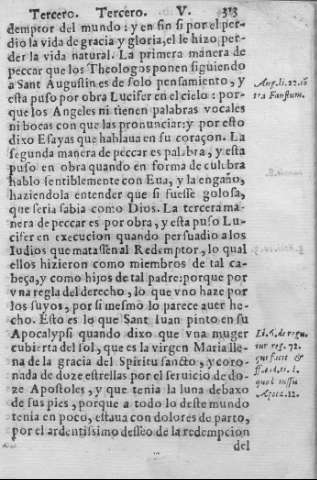 Tercero. Tercero. V. 313
demptor del mundo: y en fin si por el per-
dio la vida de gracia y gloria, el le hizo per-
der la vida natural. La primera manera de
peccar que los Theologos ponen siguiendo
a Sant Augustin es de solo pensamiento, y
esta puso por obra Lucifer en el cielo: por-
que los Angeles ni tienen palabras vocales
ni bocas con que las pronunciar: y por esto
dixo Esayas que hablaua en su coraçon. La
segunda manera de peccar es palabra, y esta
puso en obra quando en forma de culebra
hablo sensiblemente con Eua, y la engaño,
haziendola entender que si fuesse golosa,
que seria sabia como Dios. La tercera ma
nera de peccar es por obra, y esta puso Lu-
cifer en execucion quando persuadio a los
Iudios que matassen al Redemptor, lo qual
ellos hizieron como miembros de tal ca-
beça, y como hijos de tal padre: porque por
vna regla del derecho, lo que vno haze por
los suyos, por si mesmo lo parece auer he-
cho. Esto es lo que Sant Iuan pinto en su
Apocalypsi quando dixo que vna muger
cubierta del sol, que es la virgen Maria lle-
na de la gracia del Spiritu sancto, y coro-
nada de doze estrellas por el seruicio de do-
ze Apostoles, y que tenia la luna debaxo
de sus pies, porque a todo lo deste mundo
tenia en poco, estaua con dolores de parto,
por el ardentissimo desseo de la redempcion
del
Aug. li. 22.
tra Faustum.
Li. 6. de regu.
iur reg. 72.
qui facit &
ff. e. d. ti. l.
quod iussu
Apoca. 12.